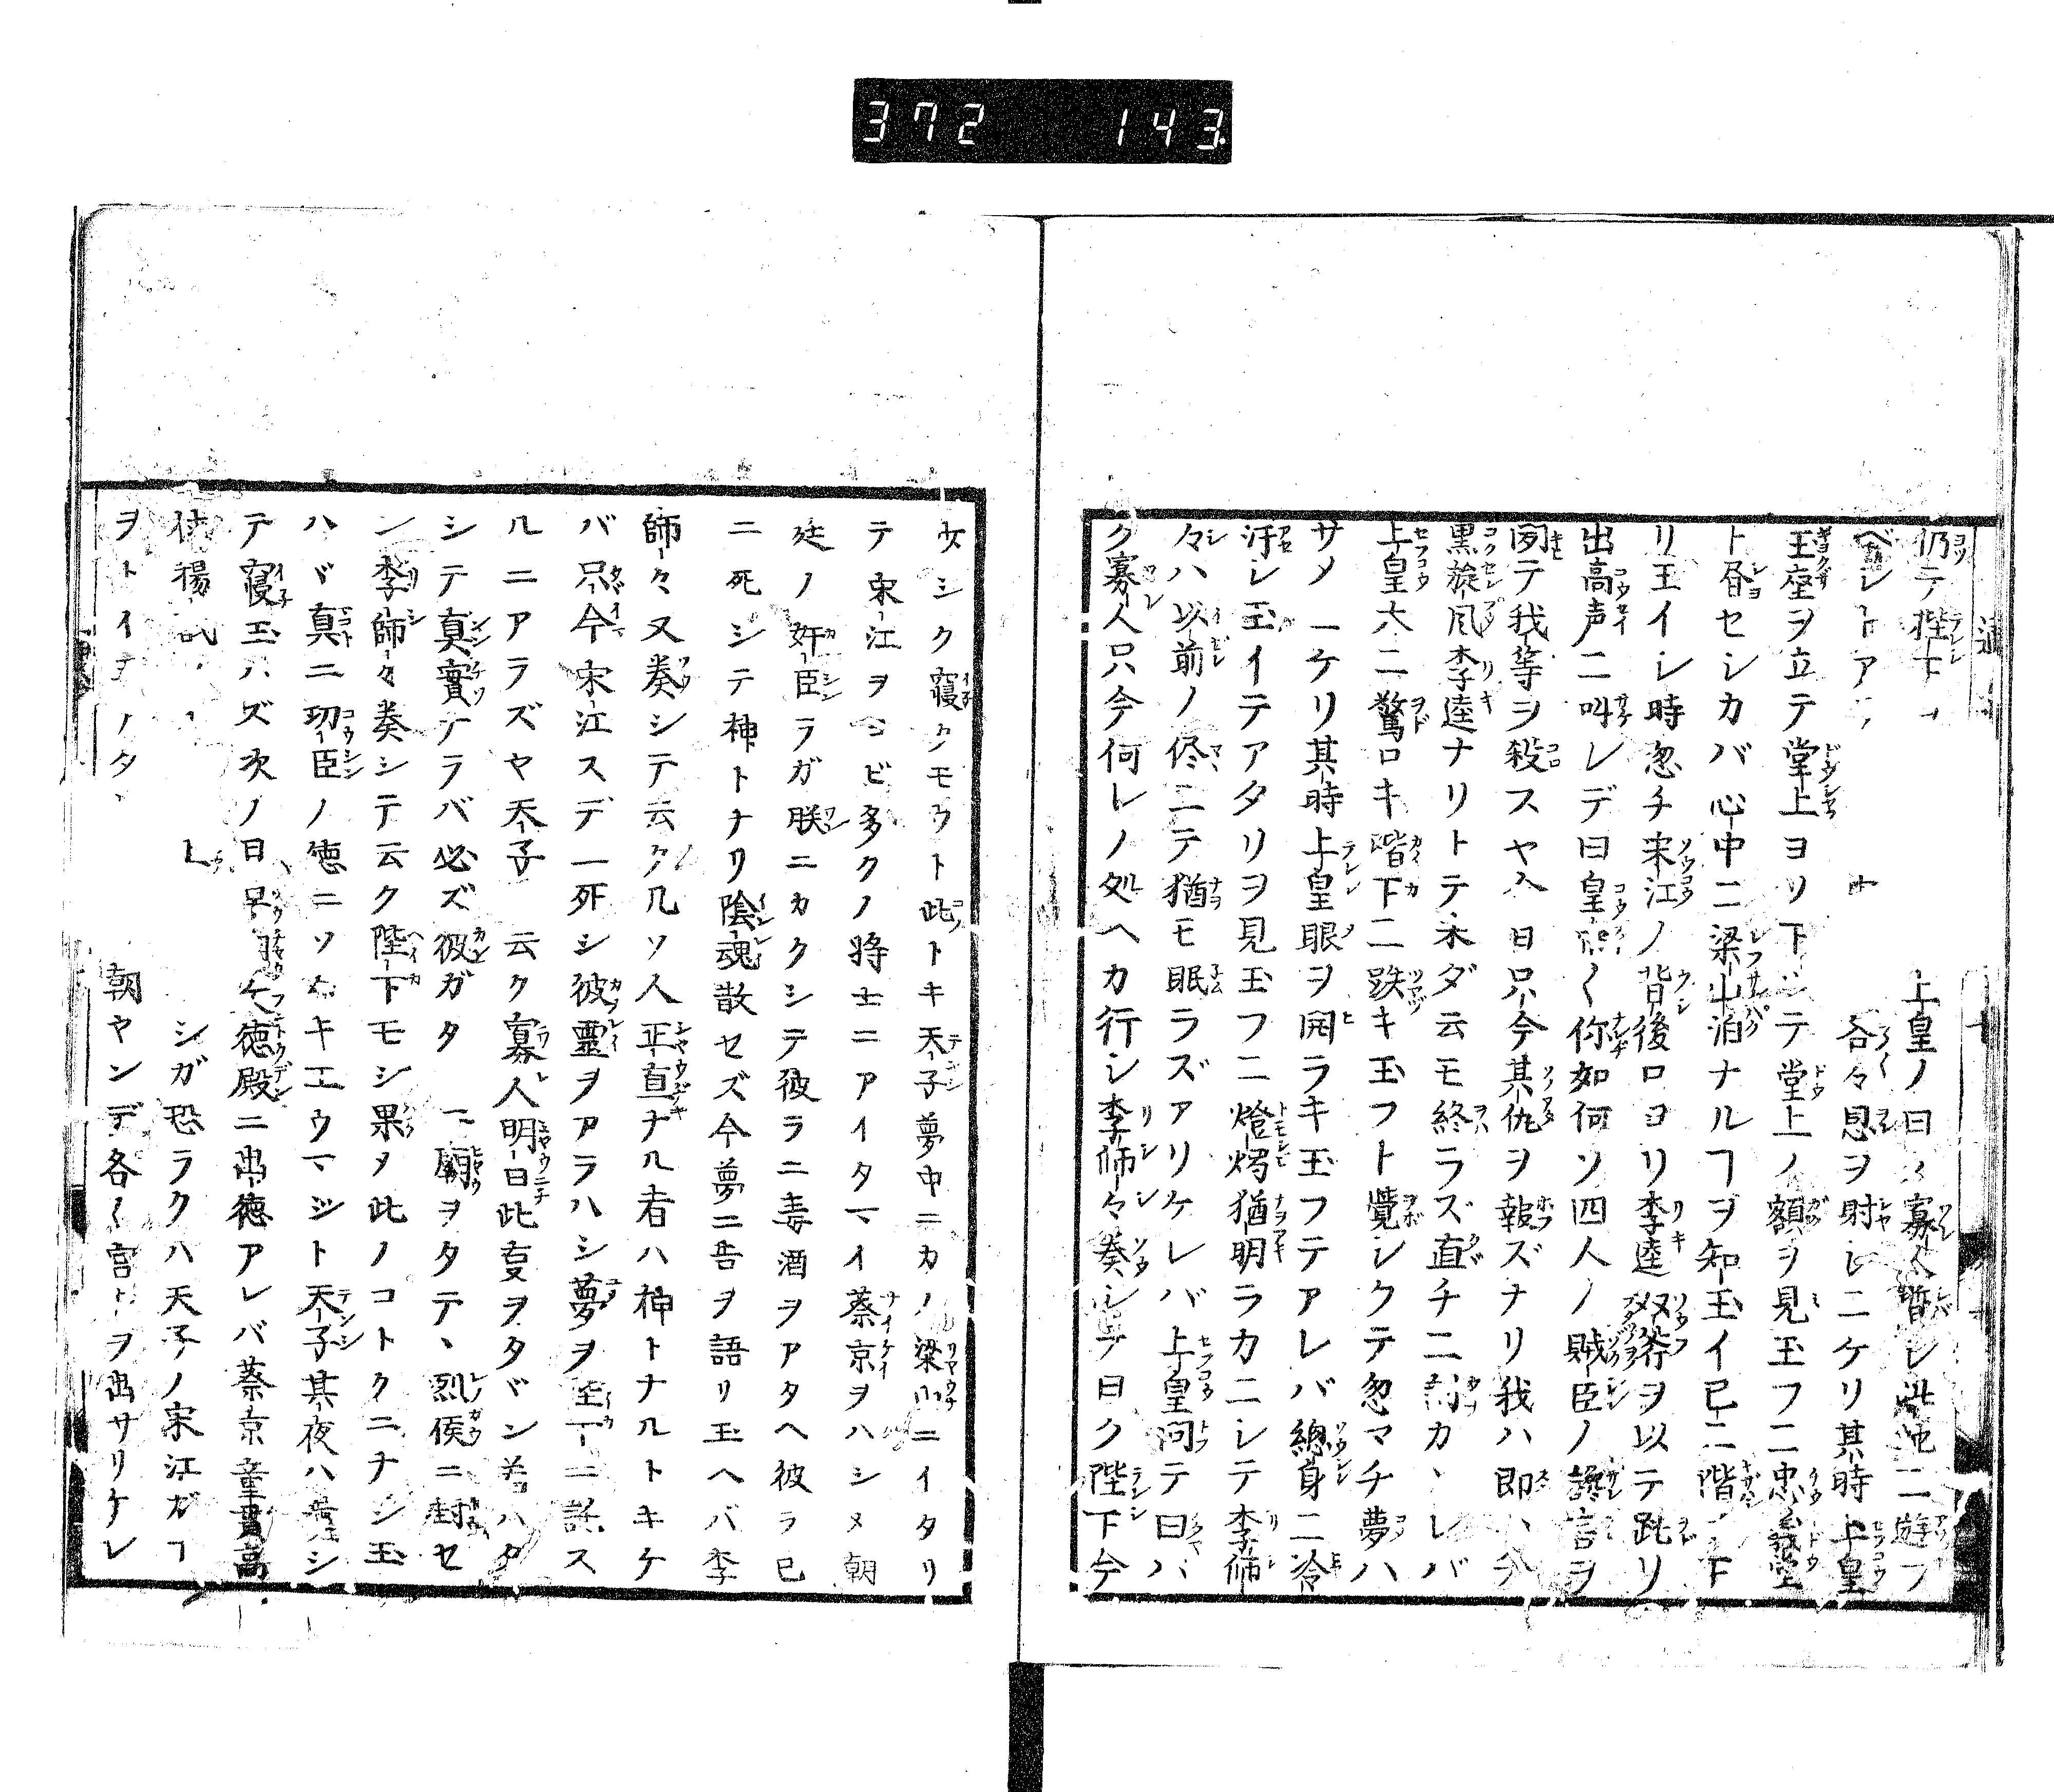 372 143
仍テ陛下
上皇ノ曰ク寡人暫シ此地ニ遊フ
ベシトア
各々恩ヲ射シニケリ其時上皇
玉座ヲ立テ堂上ヨリ下ンテ堂上ノ額ヲ見玉フニ忠義堂
ト昏セシカバ心中ニ梁山泊ナルヿヲ知玉イ已ニ階ノ下
リ玉イシ時忽チ宋江ノ背後ロヨリ李逵双斧ヲ以テ跳リ
出高声ニ叫レデ曰皇帝〱你如何ソ四人ノ賊臣ノ讒言ヲ
聞テ我等ヲ殺スヤ今日只今其仇ヲ報ズナリ我ハ即ハチ
黒旋風李逵ナリトテ未ダ云モ終ラズ直チニカヽレバ
上皇大ニ驚ロキ階下ニ跌キ玉フト覺シクテ忽マチ夢ハ
サメニケリ其時上皇眼ヲ開ラキ玉フテアレバ總身ニ冷
汗シ玉イテアタリヲ見玉フニ燈燭猶明ラカニシテ李師
々ハ以前ノ侭ニテ猶モ眠ラズアリケレバ上皇問テ曰ハ
ク寡人只今何レノ処ヘカ行シ李師々奏シテ曰ク陛下今
少シク寢タモウト此トキ天子夢中ニカノ梁山ニイタリ
テ宋江ヲヨビ多クノ將士ニアイタマイ蔡京ヲハシメ朝
廷ノ奸臣ラガ朕ニカクシテ彼ラニ毒酒ヲアタヘ彼ラ已
ニ死シテ神トナリ陰魂散セズ今夢ニ告ヲ語リ玉ヘバ李
師々又奏シテ云ク凡ソ人正直ナル者ハ神トナルトキケ
バ只今宋江スデ一死シ彼靈ヲアラハシ夢ヲ陛下ニ託ス
ルニアラズヤ天子云ク寡人明日此叓ヲタヾン若ハタ
シテ真實ナラバ必ズ彼ガタ ニ廟ヲタテヽ烈侯ニ封セ
ン李師々奏シテ云ク陛下モシ果タ此ノコトクニナシ玉
ハヾ真ニ功臣ノ徳ニソムキ玉ウマジト天子其夜ハ差シ
テ寢玉ハズ次ノ日早朝文徳殿ニ出徳アレバ蔡京童貫高
俅楊 シガ恐ラクハ天子ノ宋江ガヿ
ヲトイ ノタ 朝ヤンデ各〱宮 ヲ出サリケレ